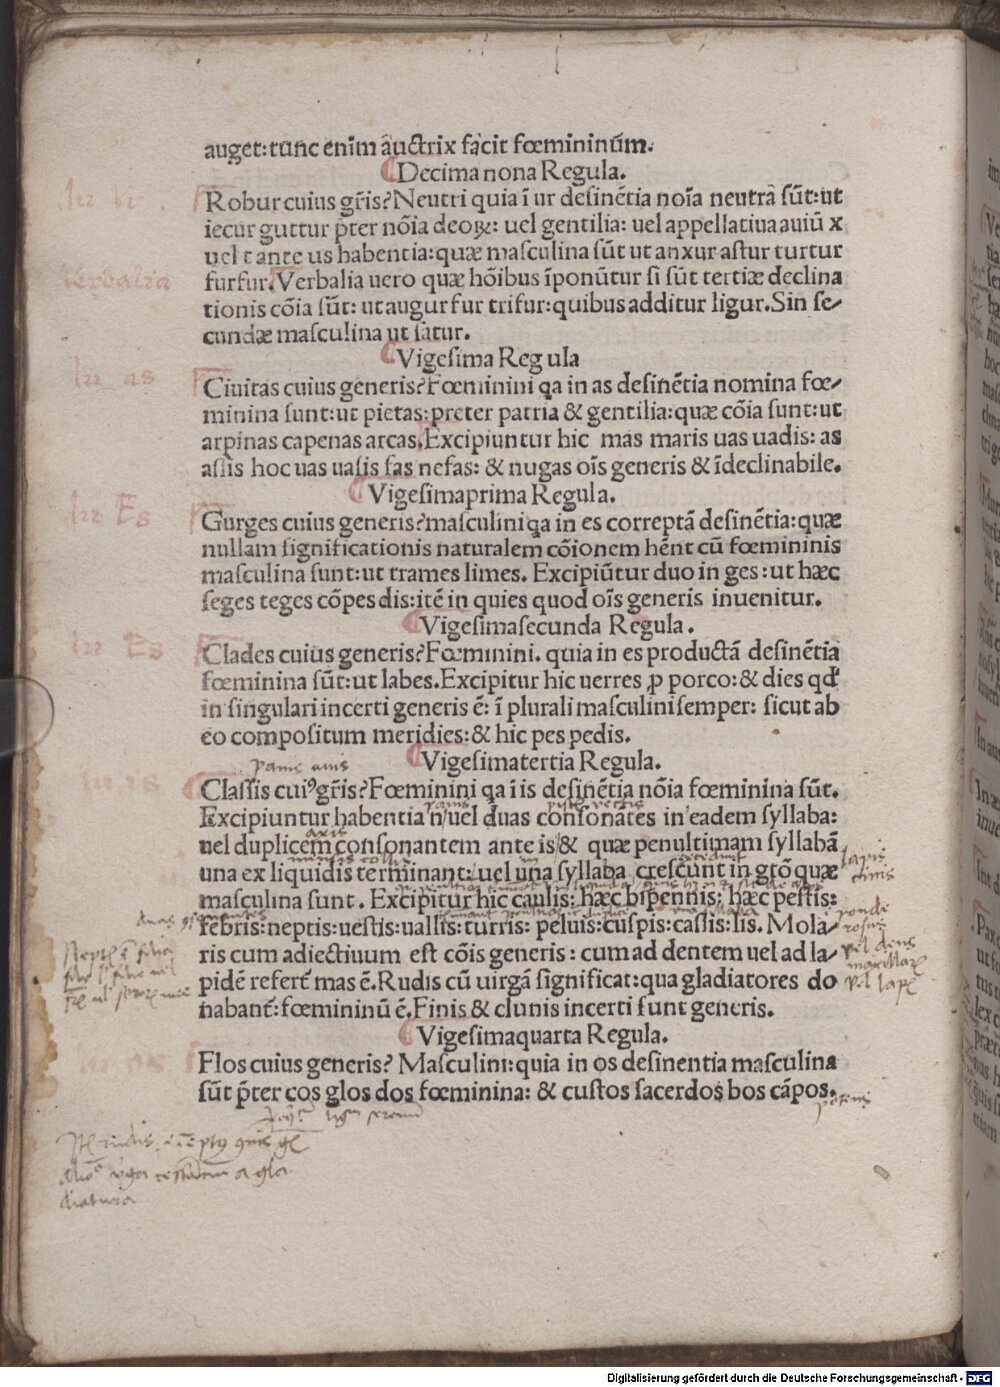 auget:tunc enim auctrix facit fœmininũm.
Decima nona Regula.
Robur cuius gr̃is? Neutri quia ĩ ur desinẽtia noĩa neutra sũt:ut
iecur guttur p̃ter nõia deoꝝ: uel gentilia: uel appellatiua auiũ x
uel t ante us habentia:quæ masculina sũt ut anxur astur turtur
furfur. Verbalia uero quæ hõibus ĩponũtur si sũt tertiæ declina
tionis cõia sũt: ut augur fur trifur:quibus additur ligur. Sin se-
cundæ masculina ut satur.
Vigesima Regula
Ciuitas cuius generis? Fœminini qa in as desinẽtia nomina fœ-
minina sunt:ut pietas:preter patria & gentilia:quæ cõia sunt:ut
arpinas capenas arcas. Excipiuntur hic mas maris uas uadis: as
assis hoc uas uasis fas nefas: & nugas oĩs generis & ĩdeclinabile.
Vigesimaprima Regula.
Gurges cuius generis? masculini qa in es correptã desinẽtia: quæ
nullam significationis naturalem cõionem hẽnt cũ fœmininis
masculina sunt:ut trames limes. Excipiũtur duo in ges: ut hæc
seges teges cõpes dis:itẽ in quies quod oĩs generis inuenitur.
Vigesimasecunda Regula.
Clades cuius generis? Fœminini. quia in es productã desinẽtia
fœminina sũt:ut labes. Excipitur hic uerres ꝓ porco: & dies qd'
in singulari incerti generis ẽ: ĩ plurali masculini semper: sicut ab
eo compositum meridies: & hic pes pedis.
Vigesimatertia Regula.
panis
Classis cuiꝰ gr̃is? Fœminini qa ĩ is desinẽtia nõia fœminina sũt.
Excipiuntur habentia n uel duas consonãtes in eadem syllaba:
axis
uel duplicem consonantem ante is & quæ penultimam syllabã
una ex liquidis terminant: uel una syllaba crescunt in gtõ quæ
lapis
cinis
masculina sunt. Excipitur hic caulis: hæc bipennis: hæc pestis:
febris:neptis:uestis:uallis:turris: peluis:cuspis:cassis:lis. Mola-
ris cum adiectiuum est cõis generis: cum ad dentem uel ad la-
uel dens
pidẽ refert̃ mas ẽ. Rudis cũ uirgã significat:qua gladiatores do
nabant̃: fœmininũ ẽ. Finis & clunis incerti sunt generis.
Vigesimaquarta Regula.
Flos cuius generis? Masculini: quia in os desinentia masculina
sũt p̃ter cos glos dos fœminina: & custos sacerdos bos cãpos.
In as
In Es
In Es
Verbalia
Digitalisierung gefördert durch die Deutsche Forschungsgemeinschaft - DFG